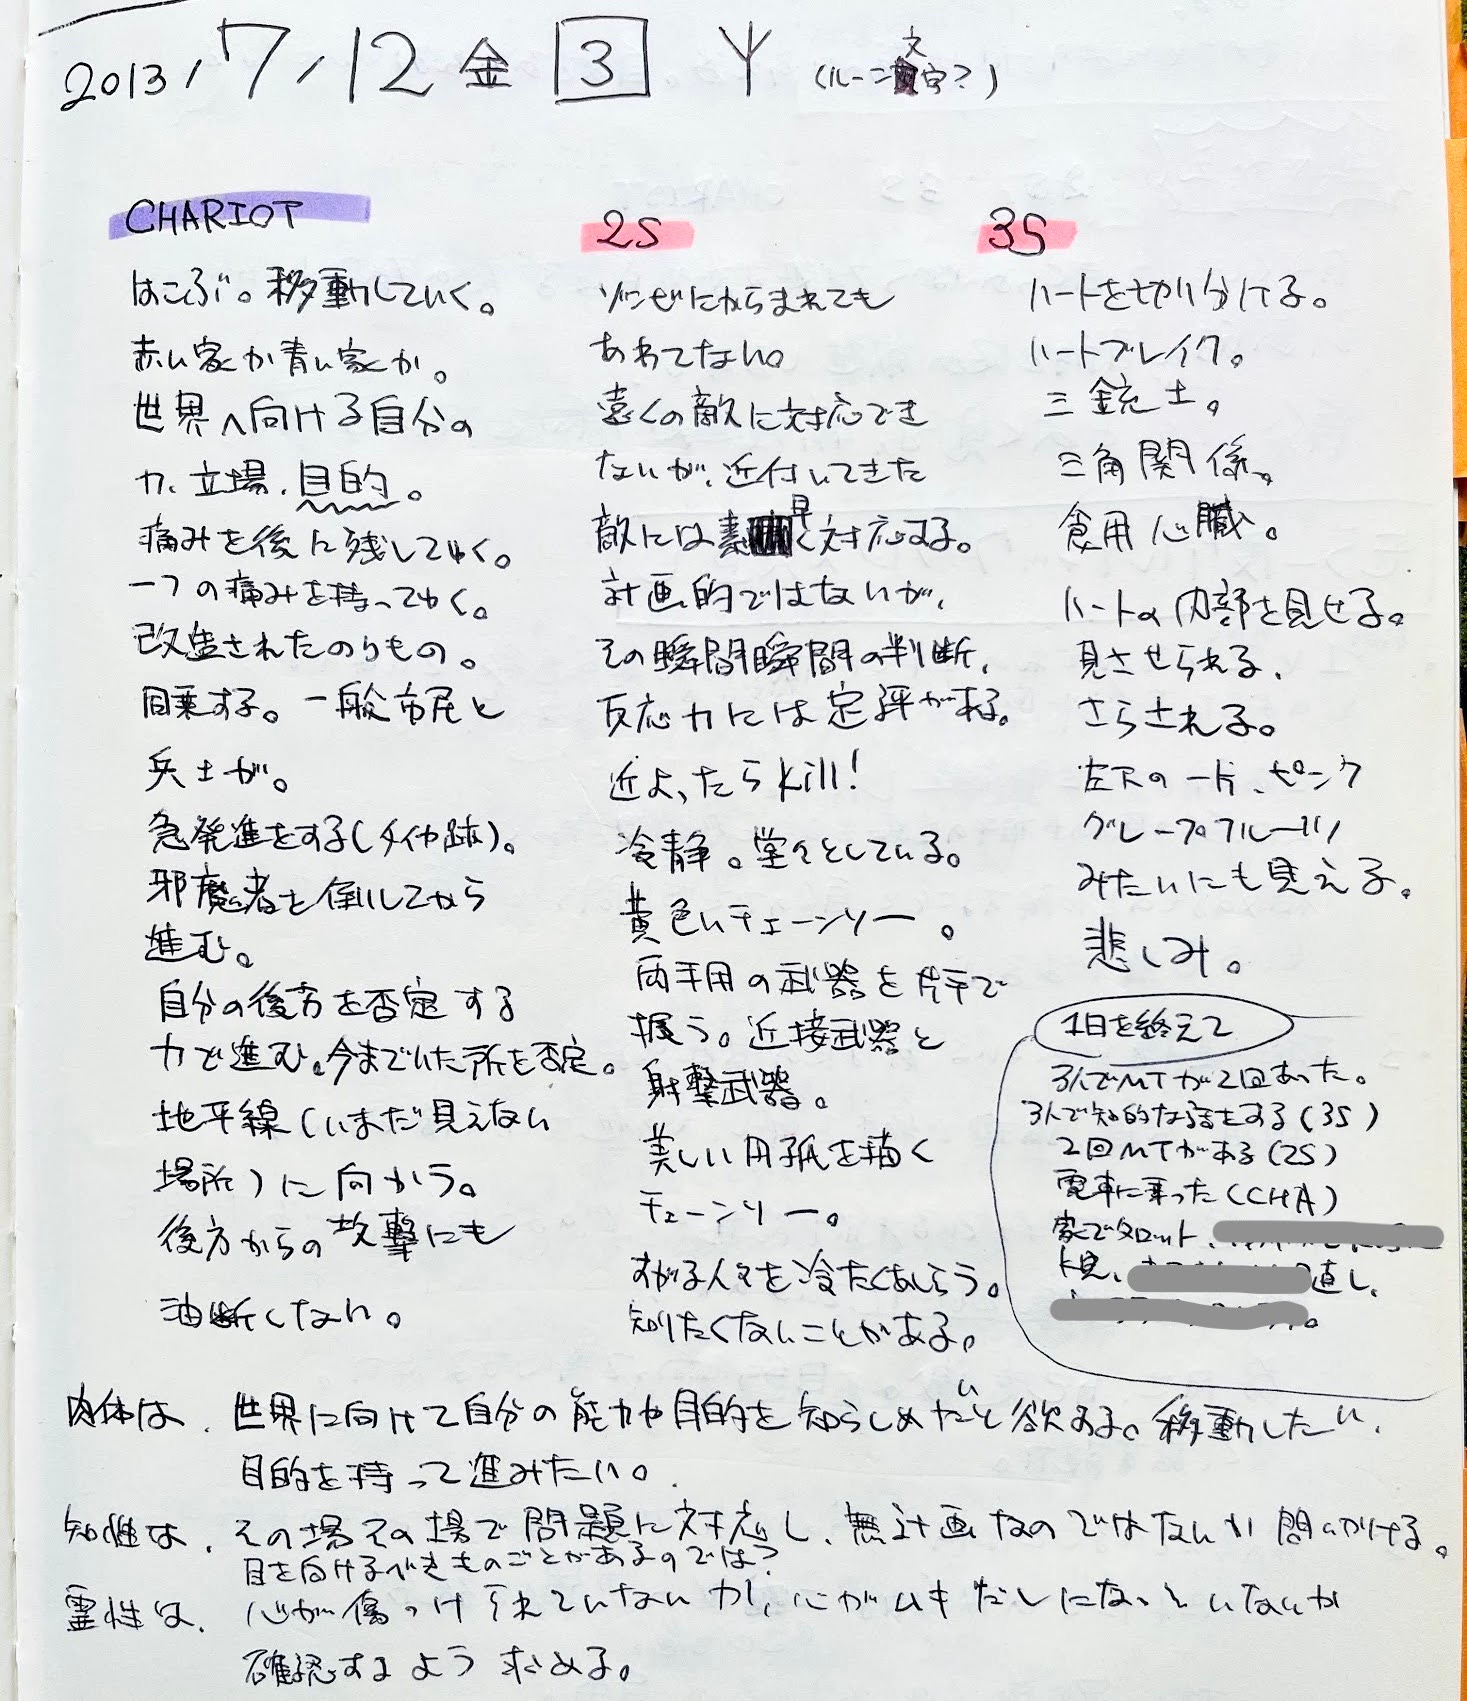 2013/7/12 金 3 (ルーン文字?)
CHARIOT
はこぶ。移動していく。
赤い家か青い家か。
世界へ向ける自分の
力、立場、目的。
痛みを後に残してゆく。
一つの痛みを持ってゆく。
改造されたのりもの。
同乗する。一般市民と
兵士が。
急発進をする(タイヤ跡)。
邪魔者を倒してから
進む。
自分の後方を否定する
力で進む。今までいた所を否定。
地平線(いまだ見えない
場所)に向かう。
後方からの攻撃にも
油断しない。
2S
ゾンビにからまれても
あわてない。
遠くの敵に対応でき
ないが、近付いてきた
敵には素早く対応する。
計画的ではないが、
その瞬間瞬間の判断、
反応力には定評がある。
近よったらkill!
冷静。堂々としている。
黄色いチェーンソー。
両手用の武器を片手で
握う。近接武器と
射撃武器。
美しい円弧を描く
チェーンソー。
すがる人々を冷たくあしらう。
知りたくないことがある。
3S
ハートを切り分ける。
ハートブレイク。
三銃士。
三角関係。
食用心臓。
ハートの内部を見せる。
見させられる、
さらされる。
左下の一片、ピンク
グレープフルーツ
みたいにも見える。
悲しみ。
1日を終えて
3人でMTが2回あった。
3人で知的な話をする(3S)
2回MTがある(2S)
電車に乗った(CHA)
家でタロット、
直し、
肉体は、世界に向けて自分の能力や目的を知らしめたいと欲する。移動したい、
目的を持って進みたい。
知性は、その場その場で問題に対応し、無計画なのではないか問いかける。
目を向けるべきものごとがあるのでは?
霊性は、心が傷つけられていないか、心がムキだしになっていないか
確認するよう求める。